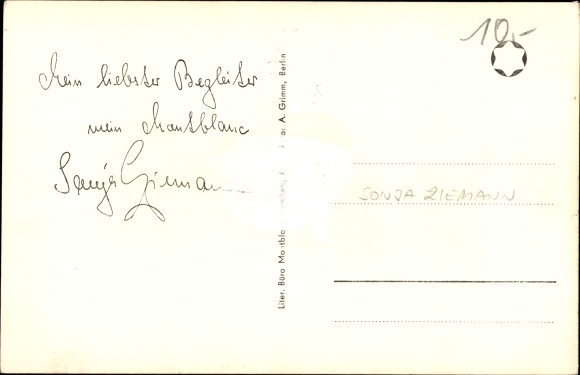 Mein liebster Begleiter
mein Montblanc
Sonja Ziemann
Liter. Büro Montbla
o: A. Grimm, Berlin
10,-
SONJA ZIEMANN